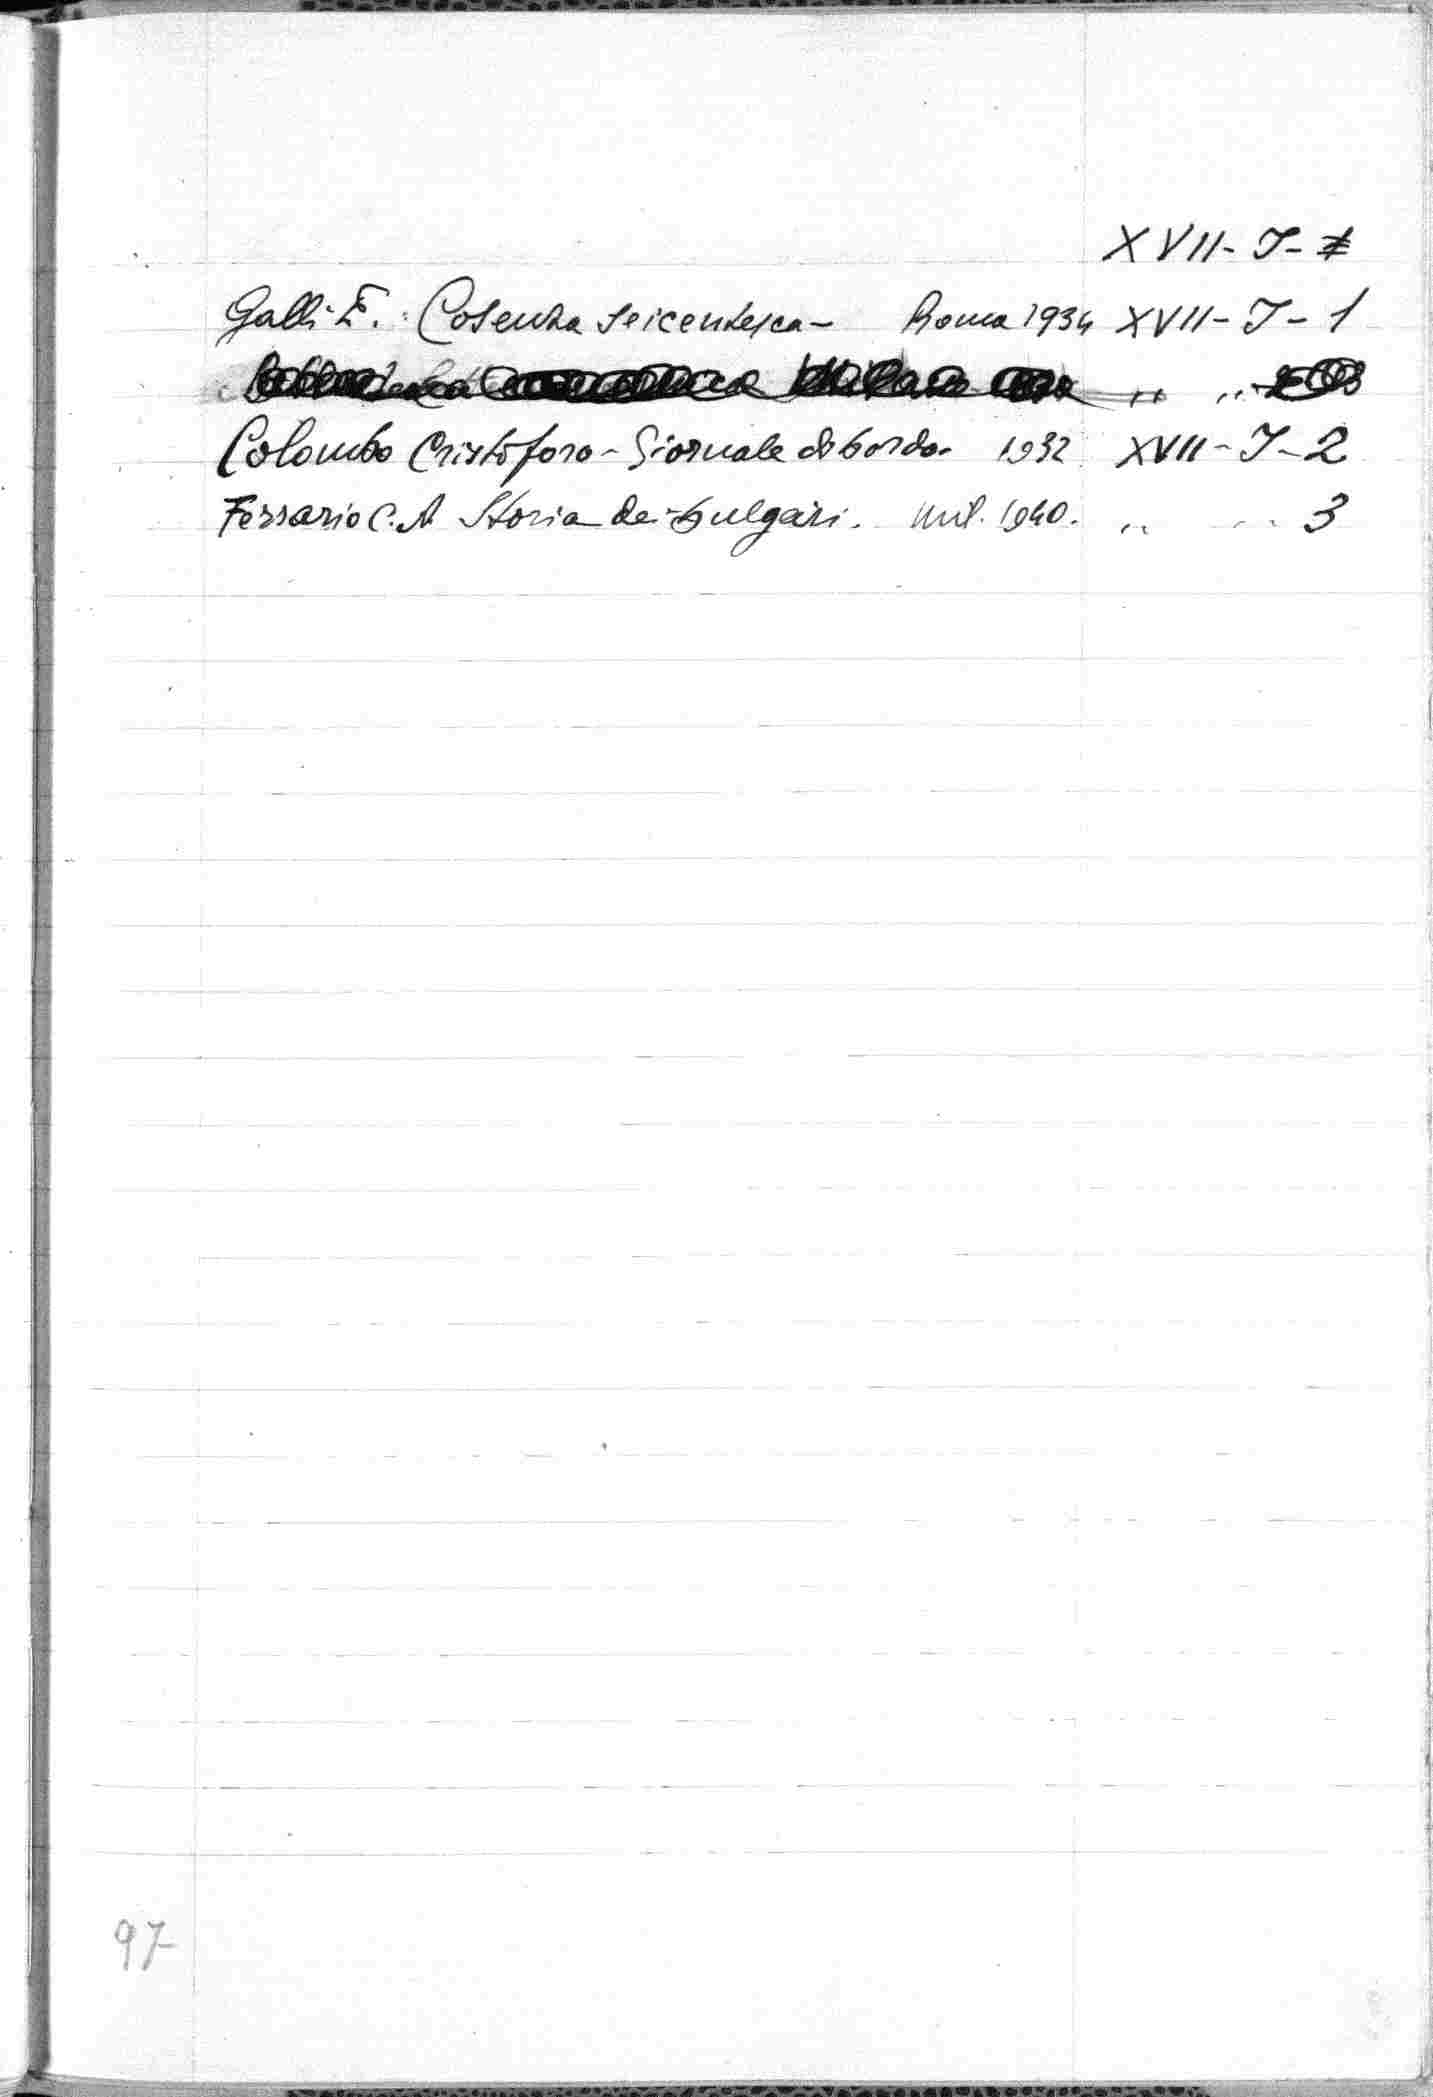 XVII - I -
Galli E. : Cosenza seicentesca - Roma 1934 XVII - I - 1
" "
Colombo Cristoforo - Giornale di bordo. 1932 XVII - I - 2
Ferrario C. A Storia dei bulgari. Mil. 1940. " " 3
97